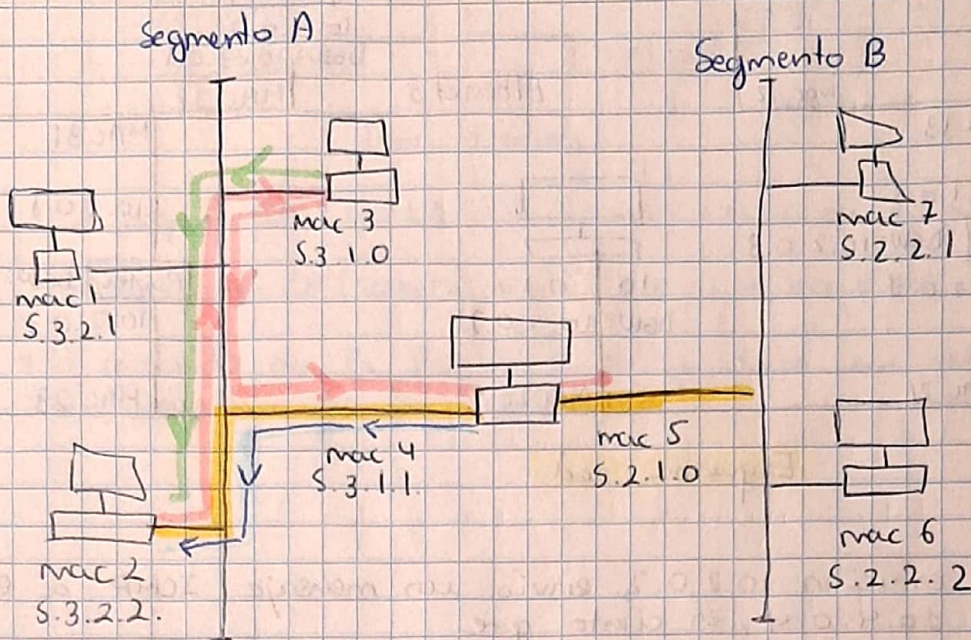 Segmento A
Segmento B
mac 3
5.3.1.0
mac 7
5.2.2.1
mac 1
5.3.2.1
mac 4
5.3.1.1.
mac 5
5.2.1.0
mac 2
5.3.2.2.
mac 6
5.2.2.2